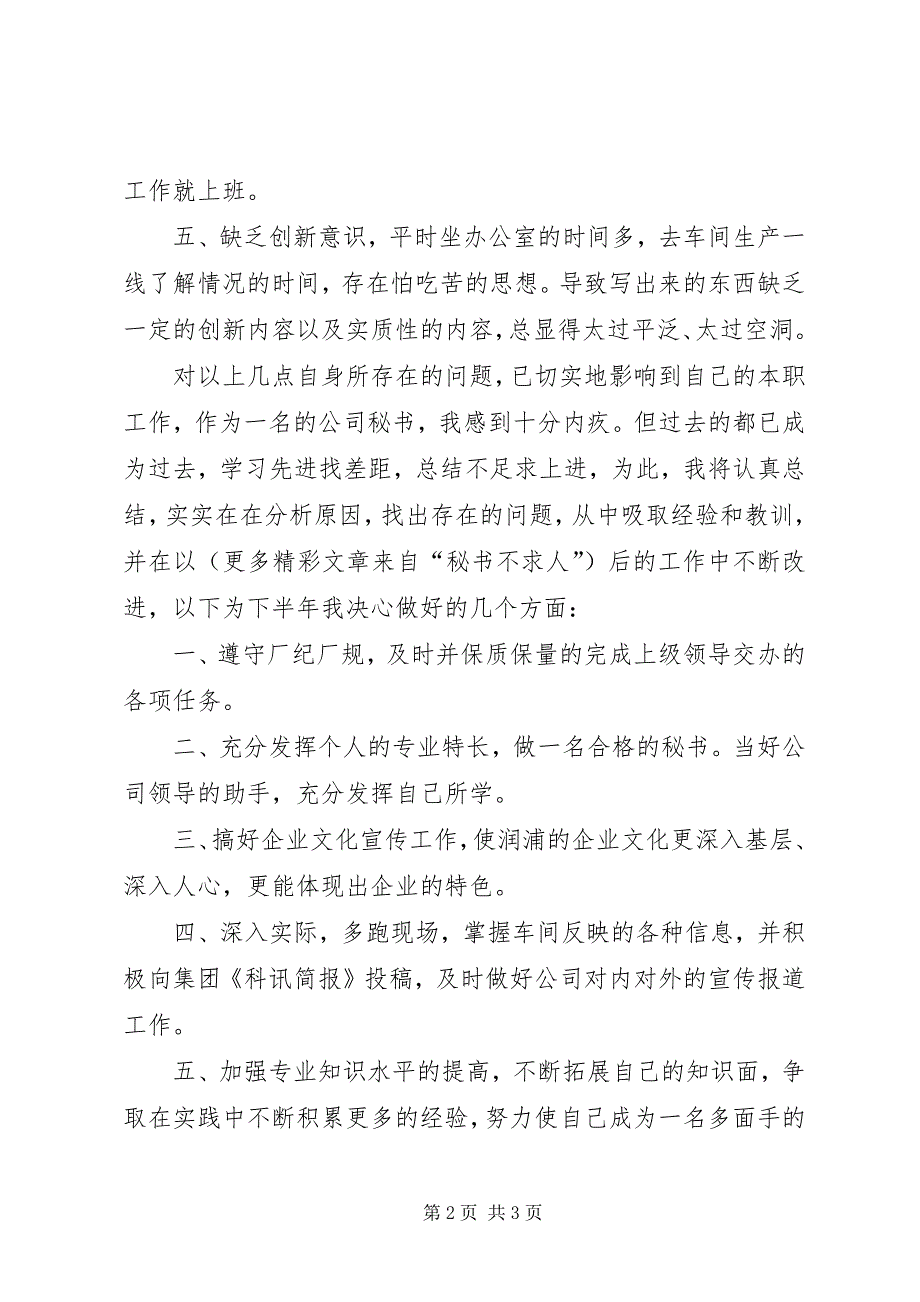 工作就上班。
五、缺乏创新意识，平时坐办公室的时间多，去车间生产一
线了解情况的时间，存在怕吃苦的思想。导致写出来的东西缺乏
一定的创新内容以及实质性的内容，总显得太过平泛、太过空洞。
对以上几点自身所存在的问题，已切实地影响到自己的本职
工作，作为一名的公司秘书，我感到十分内疚。但过去的都已成
为过去，学习先进找差距，总结不足求上进，为此，我将认真总
结，实实在在分析原因，找出存在的问题，从中吸取经验和教训，
并在以（更多精彩文章来自“秘书不求人”）后的工作中不断改
进，以下为下半年我决心做好的几个方面：
一、遵守厂纪厂规，及时并保质保量的完成上级领导交办的
各项任务。
二、充分发挥个人的专业特长，做一名合格的秘书。当好公
司领导的助手，充分发挥自己所学。
三、搞好企业文化宣传工作，使润浦的企业文化更深入基层、
深入人心，更能体现出企业的特色。
四、深入实际，多跑现场，掌握车间反映的各种信息，并积
极向集团《科讯简报》投稿，及时做好公司对内对外的宣传报道
工作。
五、加强专业知识水平的提高，不断拓展自己的知识面，争
取在实践中不断积累更多的经验，努力使自己成为一名多面手的
第 2 页 共 3 页